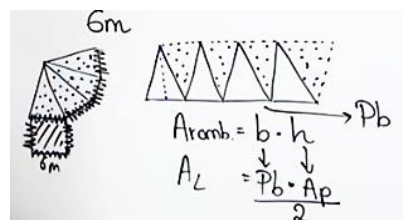 6m
Pb
Aromb. = b · h
6m
AL = Pb · Ap
2